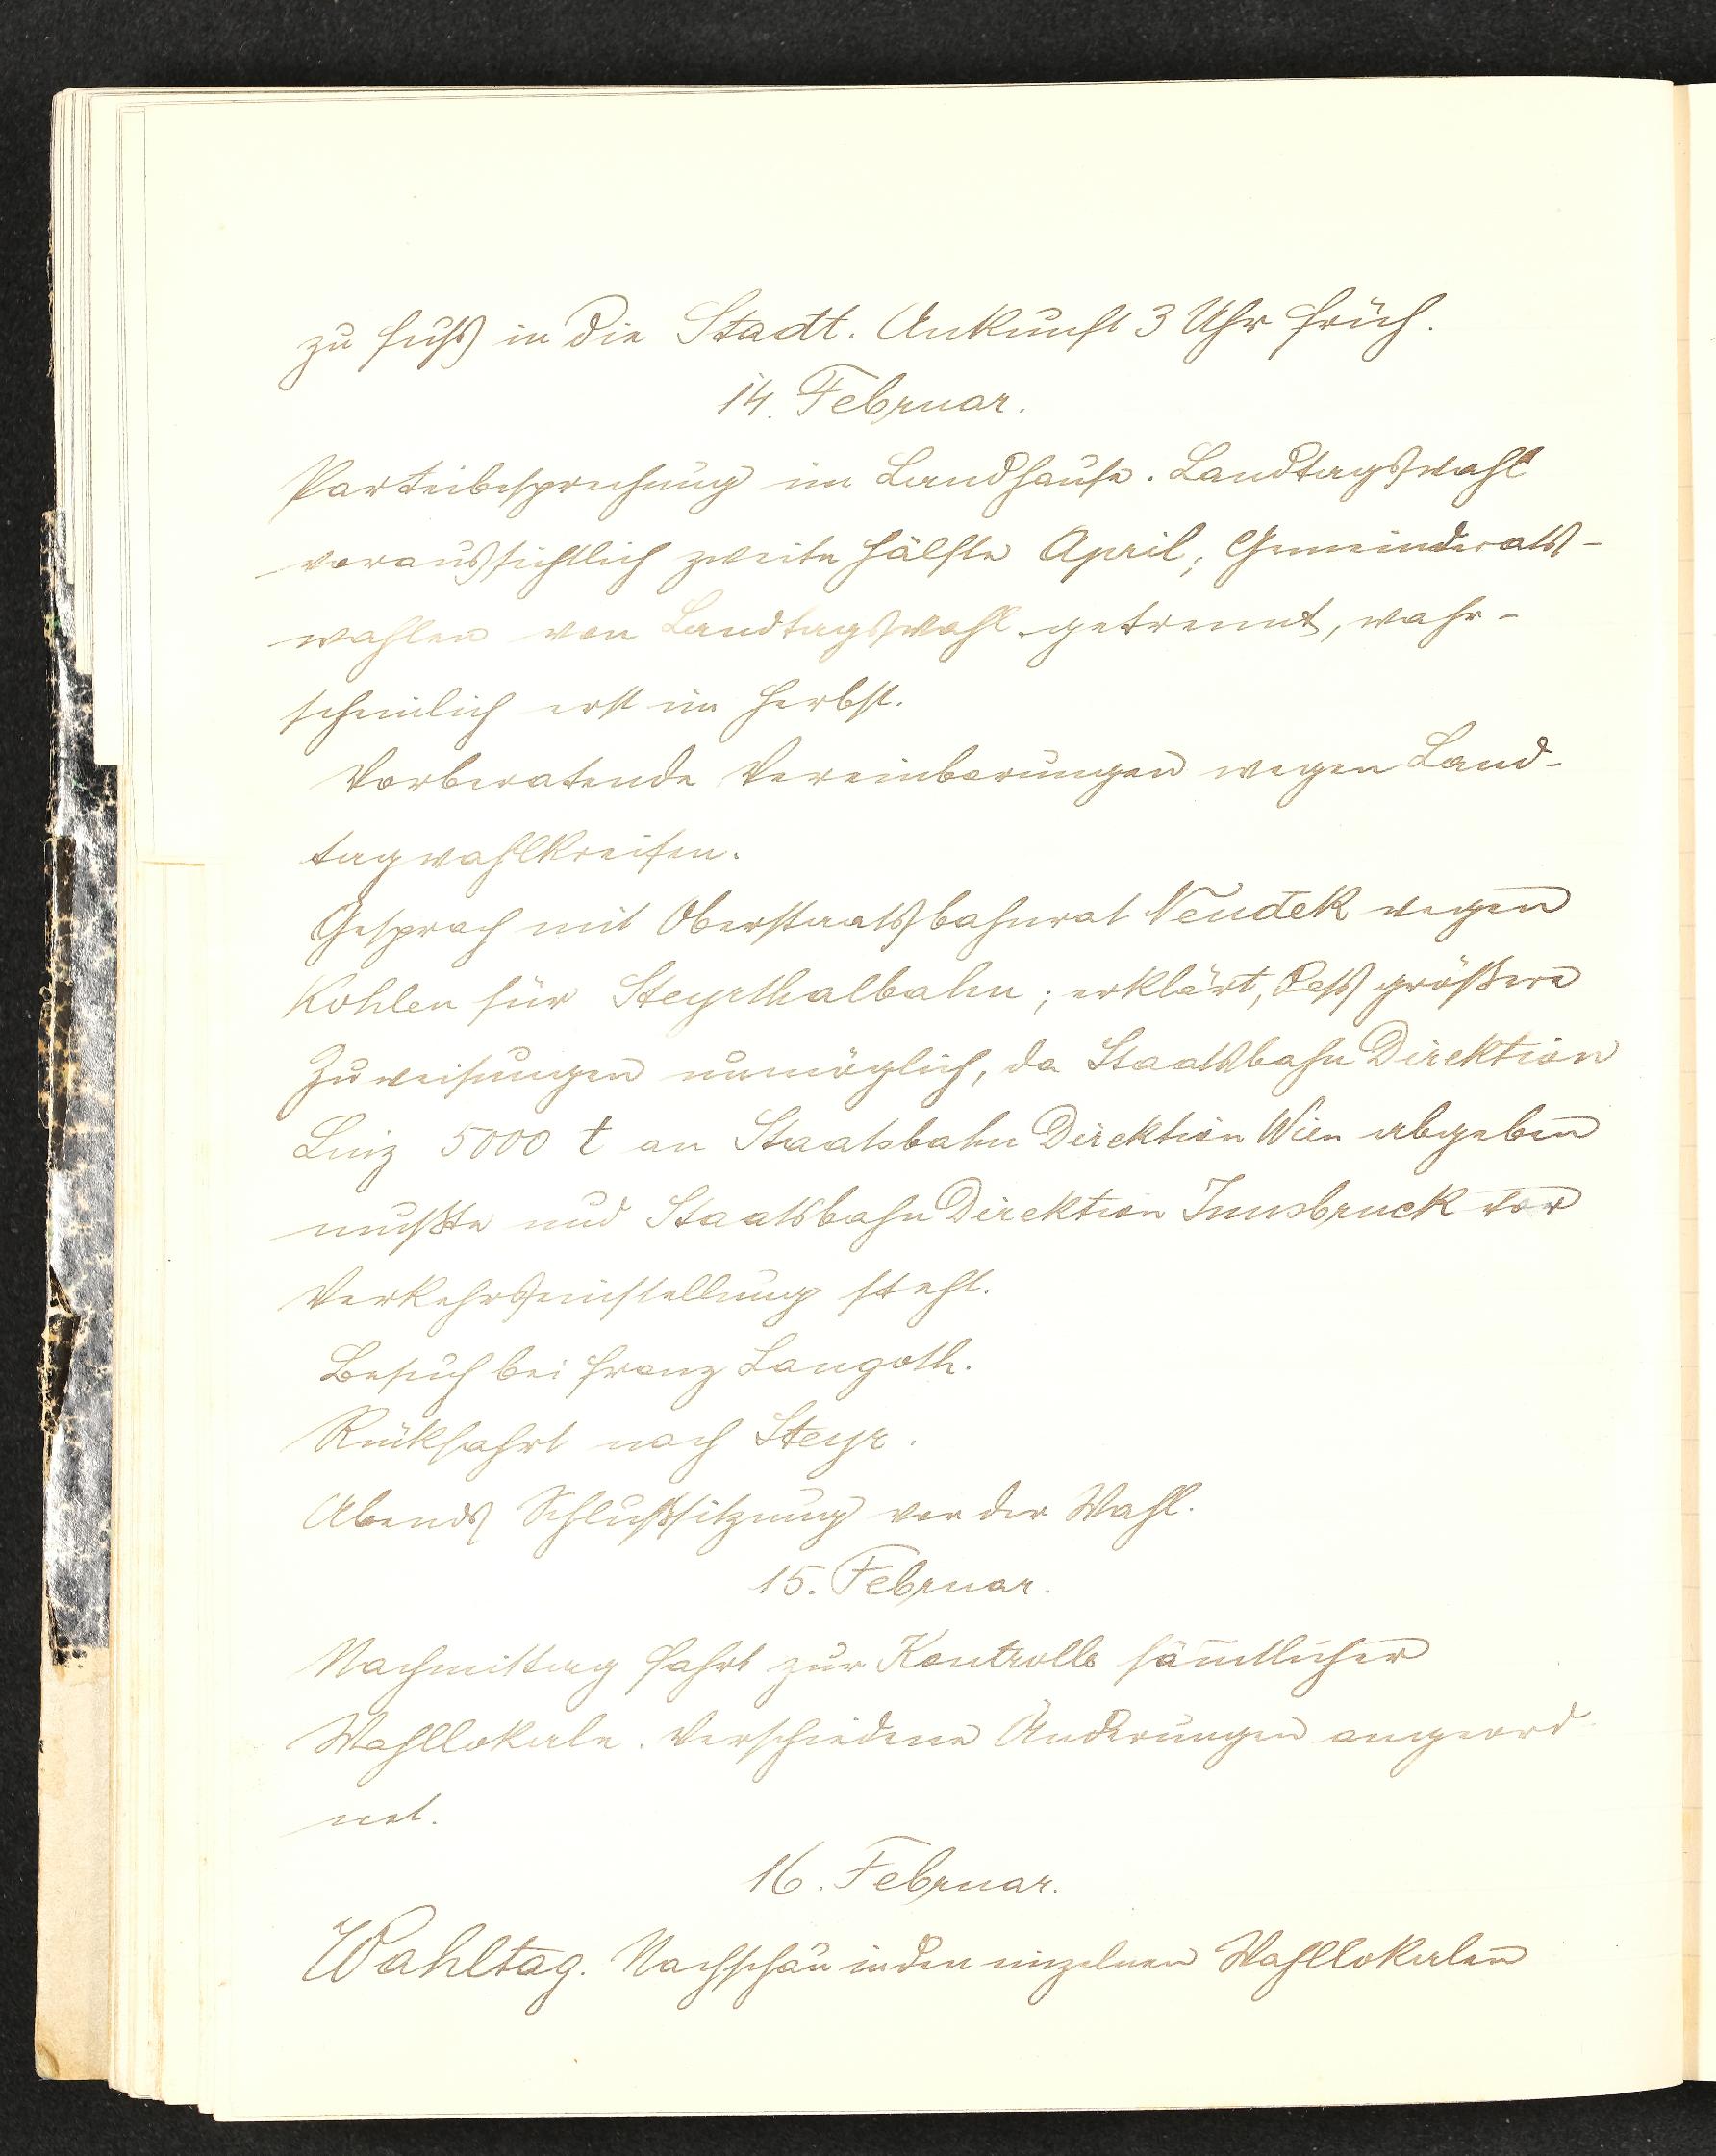 zu Fuß in die Stadt. Ankunft 3 Uhr früh.
14. Februar.
Parteibesprechung im Landhause. Landtagswahl
voraussichtlich zweite Hälfte April; Gemeinderats-
wahlen von Landtagswahl getrennt, wahr-
scheinlich erst im Herbst.
Vorberatende Vereinbarungen wegen Land-
tagwahlkreisen.
Gespräch mit Oberstaatsbahnrat Neudek wegen
Kohlen für Steyrthalbahn; erklärt, daß größere
Zuweisungen unmöglich, da Staatsbahn Direktion
Linz 5000 t an Staatsbahn Direktion Wien abgeben
mußte und Staatsbahn Direktion Innsbruck vor
Verkehrseinstellung steht.
Besuch bei Franz Langoth.
Rückfahrt nach Steyr.
Abends Schlußsitzung vor der Wahl.
15. Februar.
Nachmittag Fahrt zur Kontrolle säm̄tlicher
Wahllokale. Verschiedene Änderungen angeord
net.
16. Februar.
Wahltag. Nachschau in den einzelnen Wahllokalen